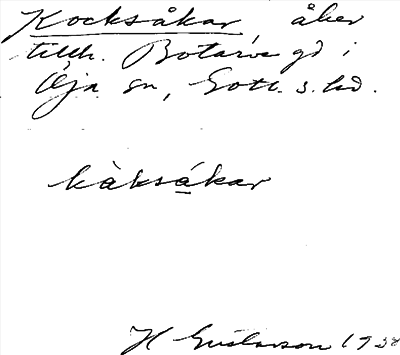 Kocksåkar åker
tillh. Botarve gd i
Öja sn, Gotl. s. hd.
kåksákar
H Gustavson 1938